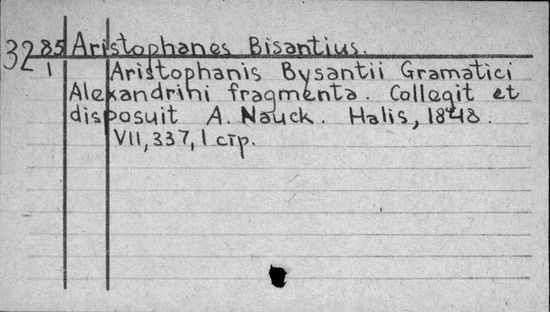 32 85 Aristophanes Bisantius.
1 Aristophanis Bysantii Gramatici
Alexandrini fragmenta. Collegit et
disposuit A. Nauck. Halis, 1848.
VII, 337, 1 стр.